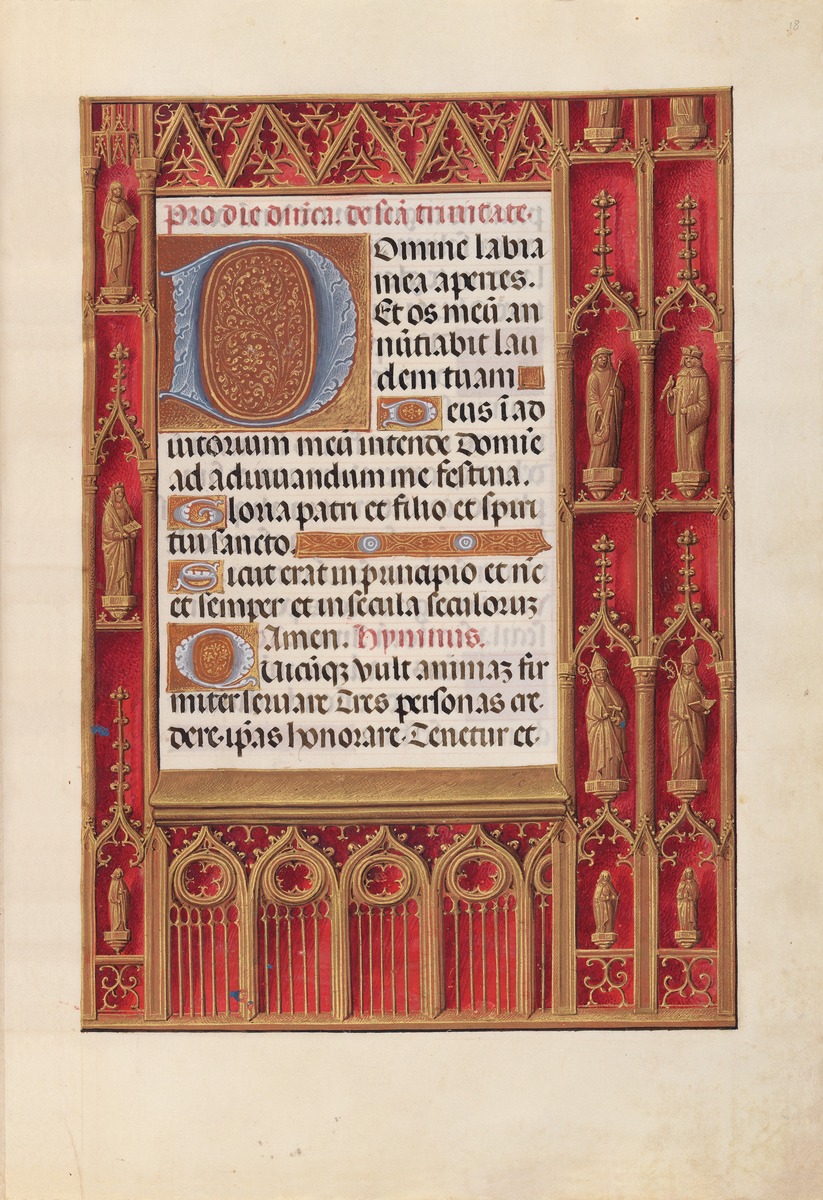 18
Pro die dn̄ica. de scā trinitate.
Domine labia
mea aperies.
Et os meū an
nūtiabit lau
dem tuam
Deus ī ad
iutorium meū intende Domīe
ad adiuuandum me festina.
Gloria patri et filio et spiri
tui sancto.
Sicut erat in principio et nc̄
et semper et in secula seculoruꝫ
Amen. Hymnus.
Quicūqꝫ vult animaꝫ fir
miter seruare Tres personas cre
dere · ip̄as honorare · Tenetur et ·